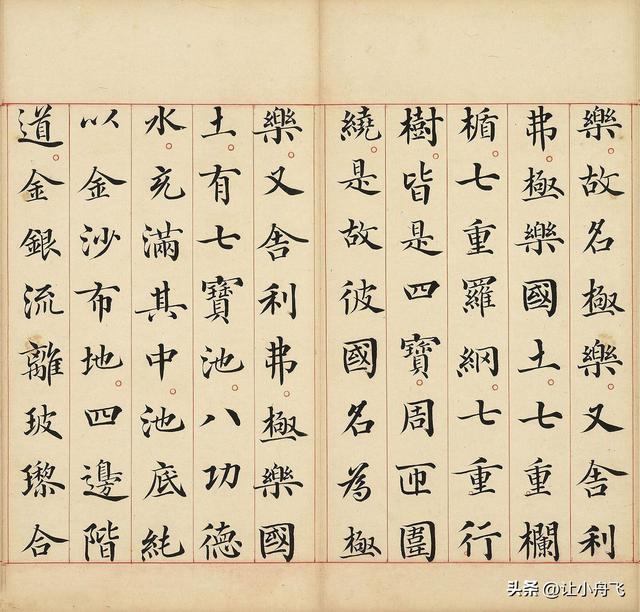 樂。故名極樂。又舍利
弗。極樂國土。七重欄
楯。七重羅網。七重行
樹。皆是四寶。周匝圍
繞。是故彼國名為極
樂。又舍利弗。極樂國
土。有七寶池。八功德
水。充滿其中。池底純
以金沙布地。四邊階
道。金銀流離玻瓈合
头条 @让小舟飞